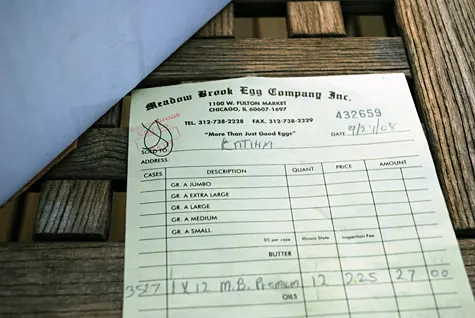 Meadow Brook Egg Company Inc.
1100 W. FULTON MARKET
CHICAGO, IL 60607-1697
TEL. 312-738-2228 FAX. 312-738-2239
432659
"More Than Just Good Eggs"
DATE 9/24/08
SOLD TO
ADDRESS
CASES DESCRIPTION QUANT PRICE AMOUNT
GR. A JUMBO
GR. A EXTRA LARGE
GR. A LARGE
GR. A MEDIUM
GR. A SMALL
per case Illinois State Inspection Fee
BUTTER
3527 1 X 12 M.B. Premium 12 2.25 27 00
OILS